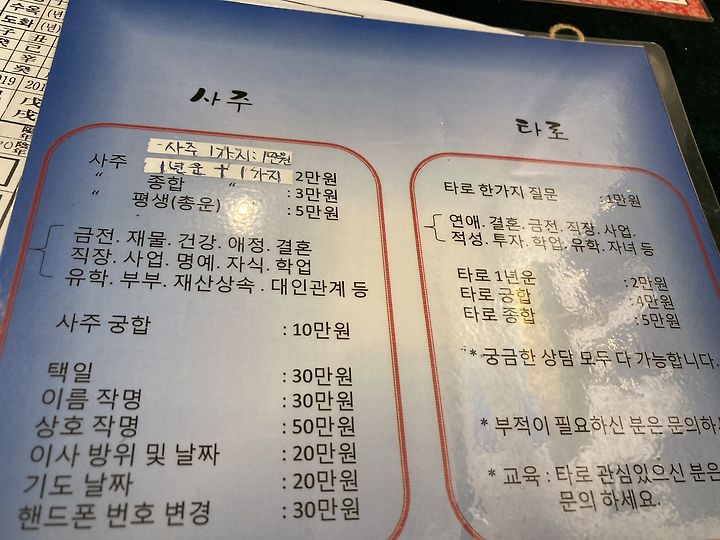 사주
사주 1가지:1만원
사주 1년운 + 1가지 2만원
" 종합 " : 3만원
" 평생(총운) : 5만원
금전. 재물. 건강. 애정. 결혼
직장. 사업. 명예. 자식. 학업
유학. 부부. 재산상속 . 대인관계 등
사주 궁합 : 10만원
택일 : 30만원
이름 작명 : 30만원
상호 작명 : 50만원
이사 방위 및 날짜 : 20만원
기도 날짜 : 20만원
핸드폰 번호 변경 : 30만원
타로
타로 한가지 질문 : 1만원
연애. 결혼. 금전. 직장. 사업.
적성. 투자. 학업. 유학. 자녀 등
타로 1년운 : 2만원
타로 궁합 : 4만원
타로 종합 : 5만원
* 궁금한 상담 모두 다 가능합니다.
* 부적이 필요하신 분은 문의하
* 교육 : 타로 관심있으신 분은
문의 하세요.